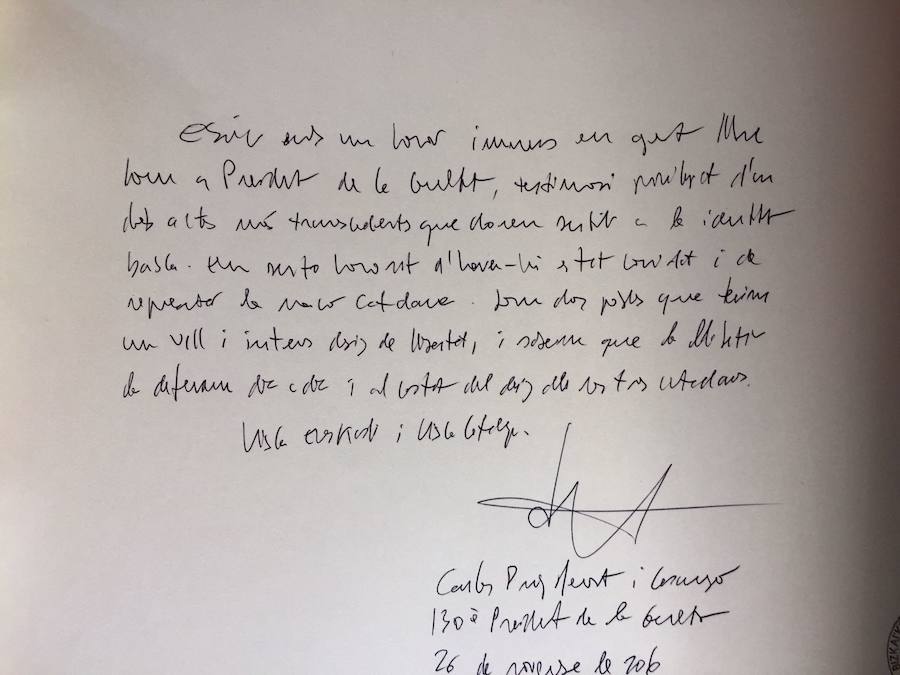 un honor immens en aquest llibre
com a President de la Generalitat, testimoni privilegiat d'un
dels actes més transcendents que donen sentit a la identitat
basca. Em sento honorat d'haver-hi estat convidat i de
representar la nació catalana. Som dos pobles que tenim
un vell i intens desig de llibertat, i sabem que la
de defensar cada dia i al costat del desig dels nostres ciutadans.
Visca Euskadi i Visca Catalunya.
Carles Puigdemont i Casamajó
130è President de la Generalitat
26 de novembre de 2016
BIZKAI